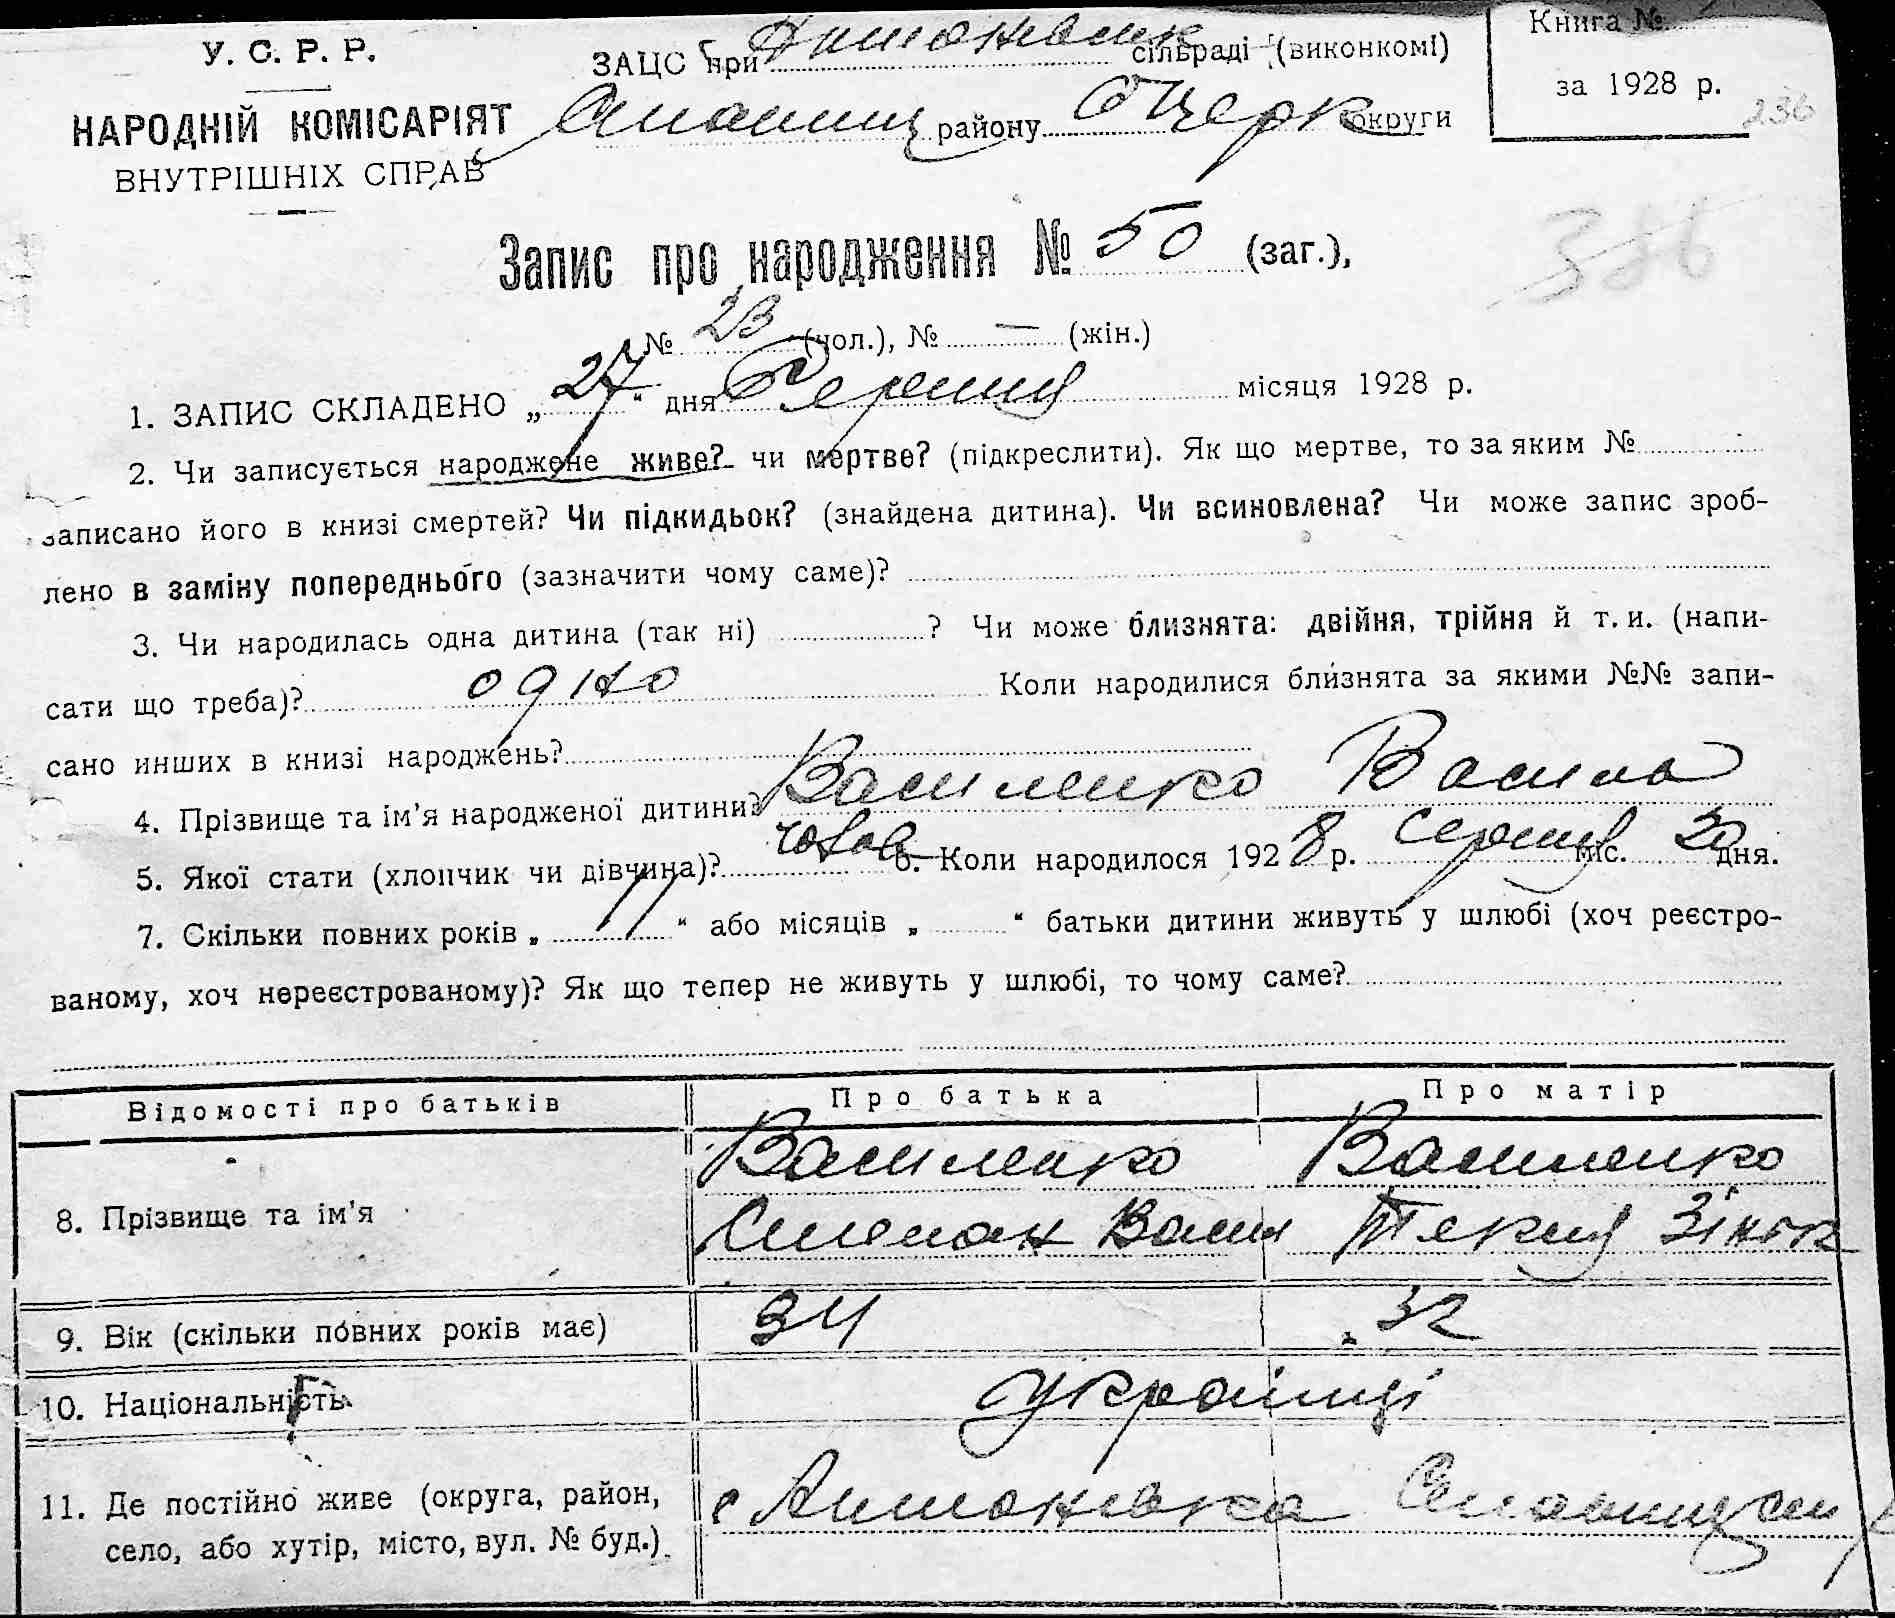 У. С. Р. Р.
НАРОДНІЙ КОМІСАРІЯТ
ВНУТРІШНІХ СПРАВ
ЗАЦС при Антонівськ сільраді (виконкомі)
району Б Церк округи
Книга №
за 1928 р.
236
Запис про народження № 50 (заг.),
№ 23 (чол.), № — (жін.)
1. ЗАПИС СКЛАДЕНО „27“ дня Серпня місяця 1928 р.
2. Чи записується народжене живе? чи мертве? (підкреслити). Як що мертве, то за яким №
записано його в книзі смертей? Чи підкидьок? (знайдена дитина). Чи всиновлена? Чи може запис зроб-
лено в заміну попереднього (зазначити чому саме)?
3. Чи народилась одна дитина (так ні) ? Чи може близнята: двійня, трійня й т. и. (напи-
сати що треба)? одно Коли народилися близнята за якими №№ запи-
сано инших в книзі народжень?
4. Прізвище та ім’я народженої дитини? Василенко Василь
5. Якої стати (хлопчик чи дівчина)? чолов 6. Коли народилося 1928 р. Серпня міс. 20 дня.
7. Скільки повних років „11“ або місяців „ “ батьки дитини живуть у шлюбі (хоч реєстро-
ваному, хоч нереєстрованому)? Як що тепер не живуть у шлюбі, то чому саме?
Відомості про батьків Про батька Про матір
8. Прізвище та ім’я Василенко Степан Васил Василенко Текля Зінок
9. Вік (скільки повних років має) 34 32
10. Національність українці
11. Де постійно живе (округа, район, с Антонівка
село, або хутір, місто, вул. № буд.)